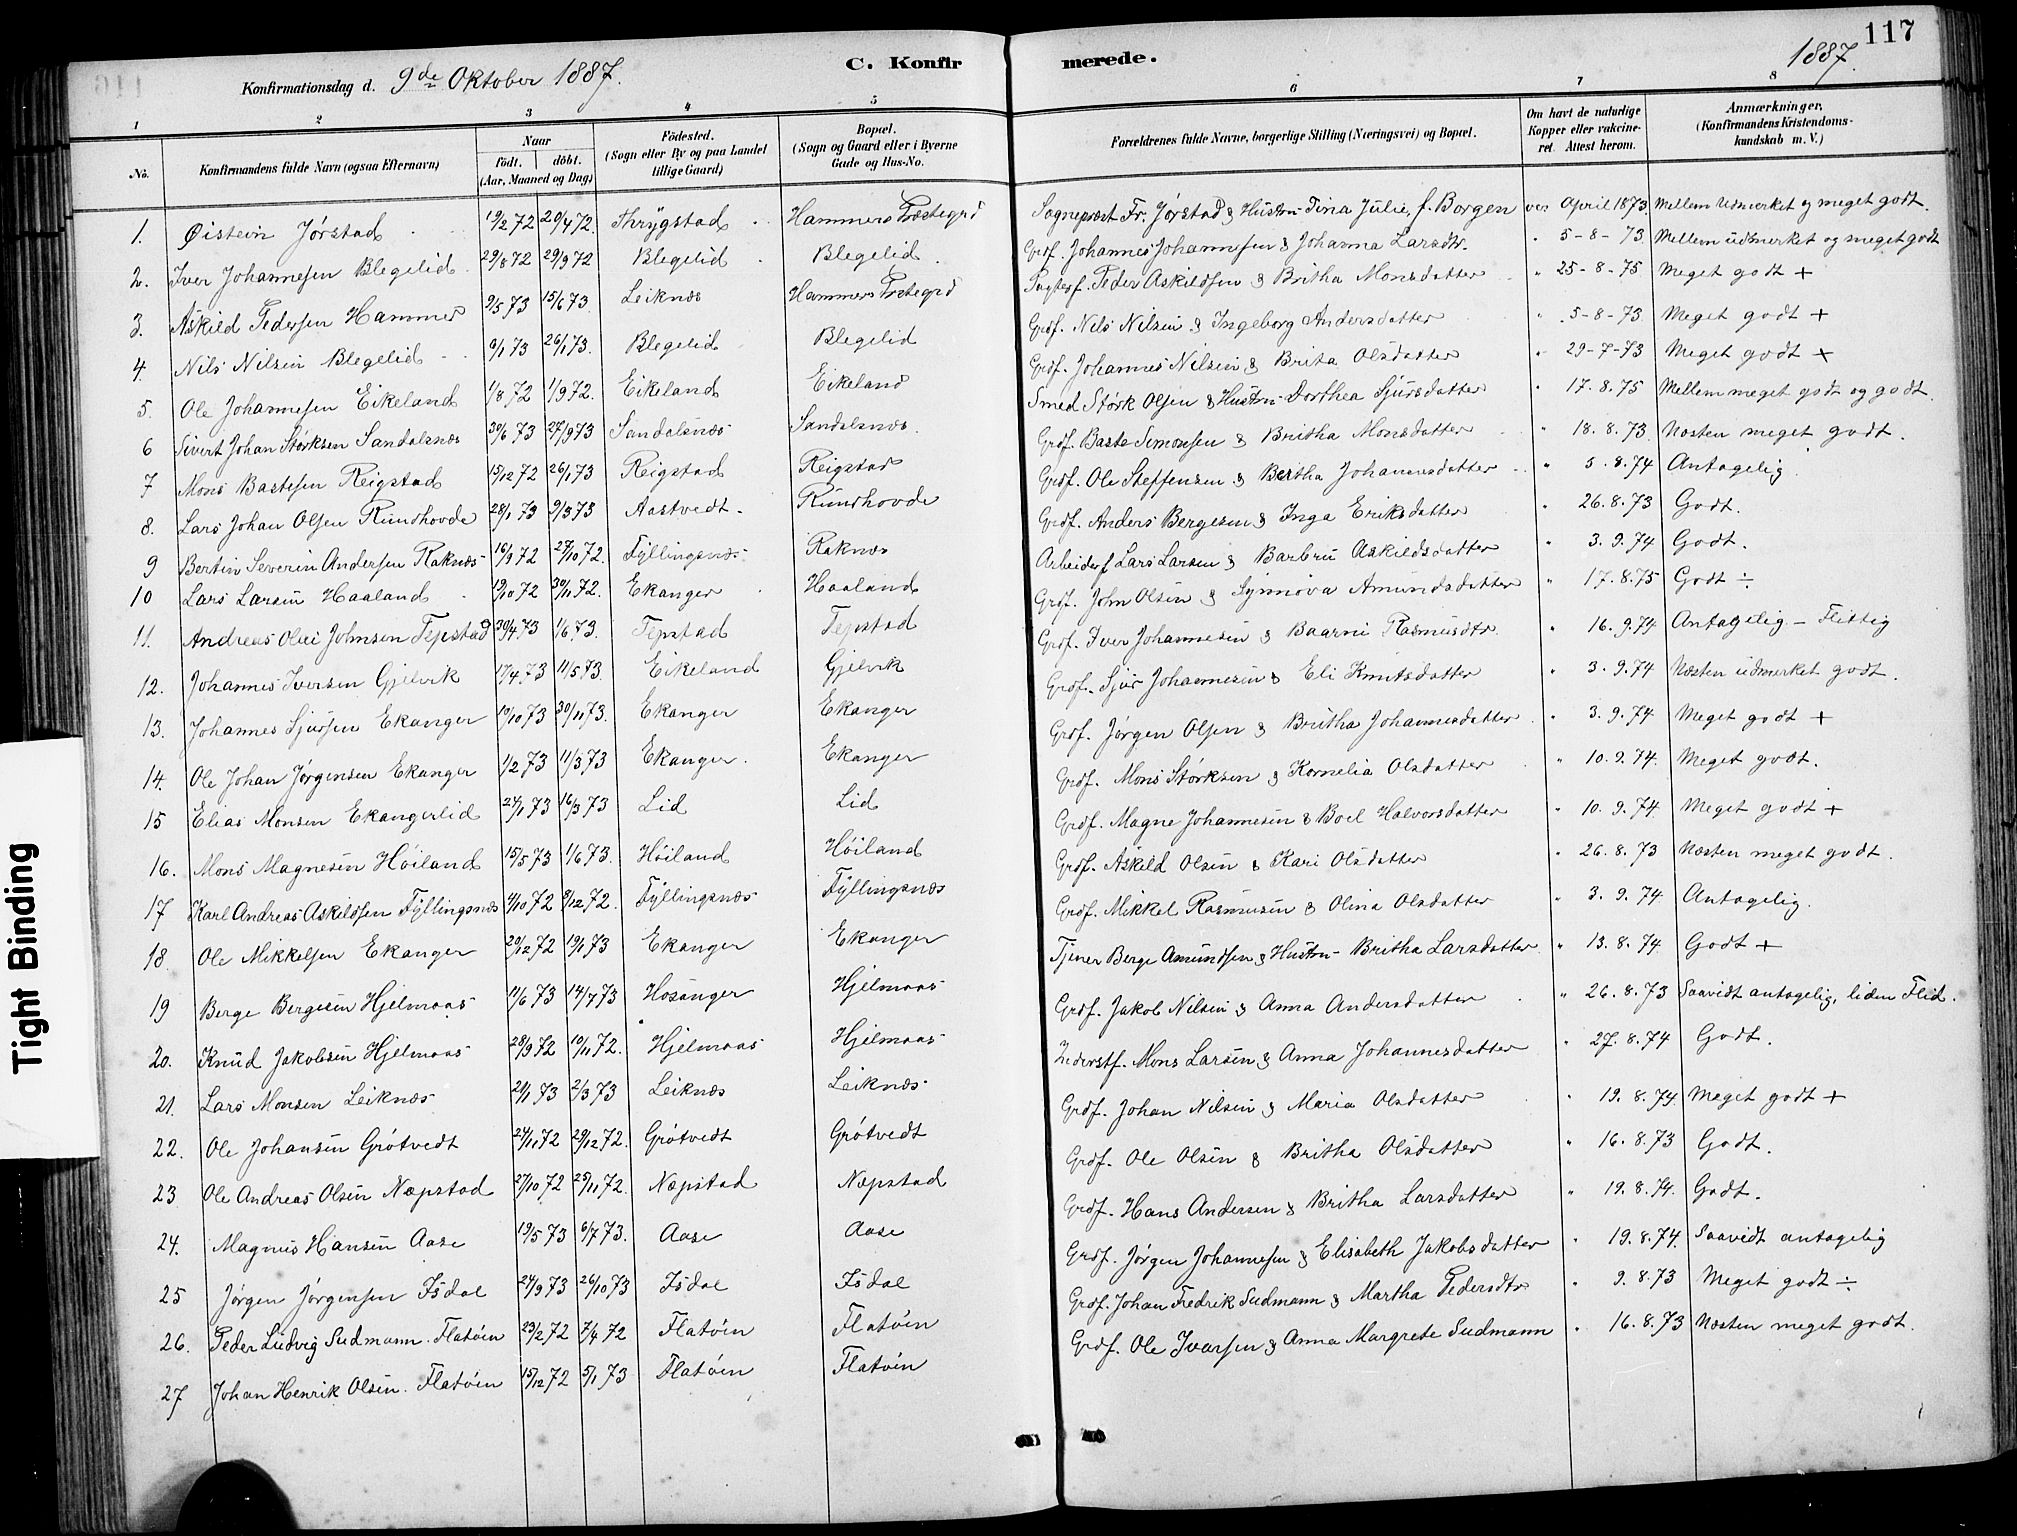 117
1887.
Konfirmationsdag d. 9de Oktober 1887.
C. Konfirmerede.
1 2 3 4 5 6 7 8
No.
Konfirmandens fulde Navn (ogsaa Efternavn)
Naar
födt. döbt.
(Aar, Maaned og Dag)
Födested.
(Sogn eller By og paa Landet
tillige Gaard)
Bopæl.
(Sogn og Gaard eller i Byerne
Gade og Hus-No.
Forældrenes fulde Navne, borgerlige Stilling (Næringsvei) og Bopæl.
Om havt de naturlige
Kopper eller vakcine-
ret. Attest herom.
Anmærkninger.
(Konfirmandens Kristendoms-
kundskab m. V.)
1. Øistein Jørstad 19/2 72 20/4 72. Thrygstad Hammers Præstegrd Sognepræst Fr. Jørstad & Hustru Tina Julie, f. Borgen vac. April 1873 Mellem udmerket og meget godt.
2. Iver Johannesen Blegelid 29/8 72 29/9 72 Blegelid Blegelid Grdf. Johannes Johannesen & Johanna Larsdtr. " 5-8-73 Mellem udmerket og meget godt
3. Askild Pedersen Hammer 9/5 73 15/6 73 Leiknæs Hammers Prstegrd Pagterf. Peder Askildsen & Britha Monsdatter " 25-8-75 Meget godt +
4. Nils Nilsen Blegelid 6/1 73 26/1 73. Blegelid Blegelid Grdf. Nils Nilsen & Ingeborg Andersdatter " 5-8-73 Meget godt +
5. Ole Johannesen Eikeland 1/8 72 1/9 72. Eikeland Eikeland Grdf. Johannes Nilsen & Brita Olsdatter " 29-7-73 Meget godt +
6 Sivert Johan Størksen Sandalsnæs 30/6 73 27/9 73 Sandalsnæs Sandalsnæs. Smed Størk Olsen & Hustru Dorthea Sjursdatter " 17.8.75 Mellem meget godt og godt.
7 Mons Bastesen Reigstad 15/12 72 26/1 73 Reigstad Reigstad Grdf. Baste Simonsen & Britha Monsdatter " 18.8.73 Næsten meget godt.
8. Lars Johan Olsen Rundhovde 28/1 73 9/3 73 Aastvedt. Rundhovde Grdf. Ole Steffensen & Bertha Johannesdatter " 5.8.74 Antagelig
9 Bertin Severin Andersen Raknæs 16/9 72 27/10 72. Fyllingsnæs Raknæs Grdf. Anders Bergesen & Inga Eriksdatter " 26.8.73 Godt.
10 Lars Larsen Haaland 19/10 72 30/11 72. Ekanger Haaland Arbeiderf Lars Larsen & Barbru Askildsdatter " 3.9.74 Godt.
11. Andreas Olai Johnsen Tepstad 30/4 73 1/6 73. Tepstad Tepstad Grdf. John Olsen & Synnøva Amundsdatter " 17.8.75 Godt ÷
12. Johannes Iversen Gjelvik 17/4 73 11/5 73. Eikeland Gjelvik Grdf. Iver Johannesen & Baarni Rasmusdtr. " 16.9.74 Antagelig – Flittig
13. Johannes Sjursen Ekanger 19/10 73 30/11 73. Ekanger Ekanger Grdf. Sjur Johannesen & Eli Knutsdatter " 3.9.74 Næsten udmerket godt.
14. Ole Johan Jørgensen Ekanger 1/2 73 11/3 73 Ekanger. Ekanger Grdf. Jørgen Olsen & Britha Johannesdatter " 3.9.74 Meget godt +
15 Elias Monsen Ekangerlid 27/1 73 16/3 73 Lid Lid Grdf. Mons Størksen & Kornelia Olsdatter " 10.9.74. Meget godt.
16. Mons Magnesen Höiland 15/5 73 1/6 73. Höiland Höiland Grdf. Magne Johannesen & Boel Halvorsdatter " 10.9.74. Meget godt +
17 Karl Andreas Askildsen Fyllingsnæs 4/10 72 8/12 72. Fyllingsnæs Fyllingsnæs Grdf. Askild Olsen & Kari Olsdatter " 26.8.73 Næsten meget godt.
18. Ole Mikkelsen Ekanger 20/12 72 19/1 73 Ekanger Ekanger Grdf. Mikkel Rasmusen & Olina Olsdatter " 3.9.74 Antagelig.
19 Berge Bergesen Hjelmaas 11/6 73 14/7 73 Hosanger Hjelmaas Tjener Berge Amundsen & Hustru Britha Larsdatter " 13.8.74. Godt +
20. Knud Jakobsen Hjelmaas 28/9 72 10/11 72. Hjelmaas Hjelmaas Grdf. Jakob Nilsen & Anna Andersdatter " 26.8.73 Saavidt antagelig, liden Flid.
21. Lars Monsen Leiknæs 21/1 73 2/3 73 Leiknæs Leiknæs Mons Larsen & Anna Johannesdatter " 27.8.74 Godt.
22. Ole Johansen Grótvedt 24/11 72 29/12 72. Grótvedt Grótvedt Grdf. Johan Nilsen & Maria Olsdatter " 19.8.74. Meget godt +
23 Ole Andreas Olsen Næpstad 27/10 72 25/11 72. Næpstad Næpstad Grdf. Ole Olsen & Britha Olsdatter " 16.8.73 Godt.
24. Magnus Hansen Aase 19/5 73 6/7 73. Aase Aase Grdf. Hans Andersen & Britha Larsdatter " 19.8.74. Godt.
25 Jørgen Jørgensen Isdal 24/9 73 26/10 73 Isdal Isdal Grdf. Jørgen Johannesen & Elisabeth Jakobsdatter " 19.8.74. Saavidt antagelig
26. Peder Ludvig Sudmann. Flatöen 23/2 72 7/4 72 Flatöen Flatöen Grdf. Johan Fredrik Sudmann & Martha Pedersdtr " 9.8.73 Meget godt ÷
27 Johan Henrik Olsen. Flatöen 15/12 72 5/1 73 Flatöen Flatöen Grdf. Ole Ivarsen & Anna Margrete Sudmann " 16.8.73 Næsten meget godt.
Tight Binding